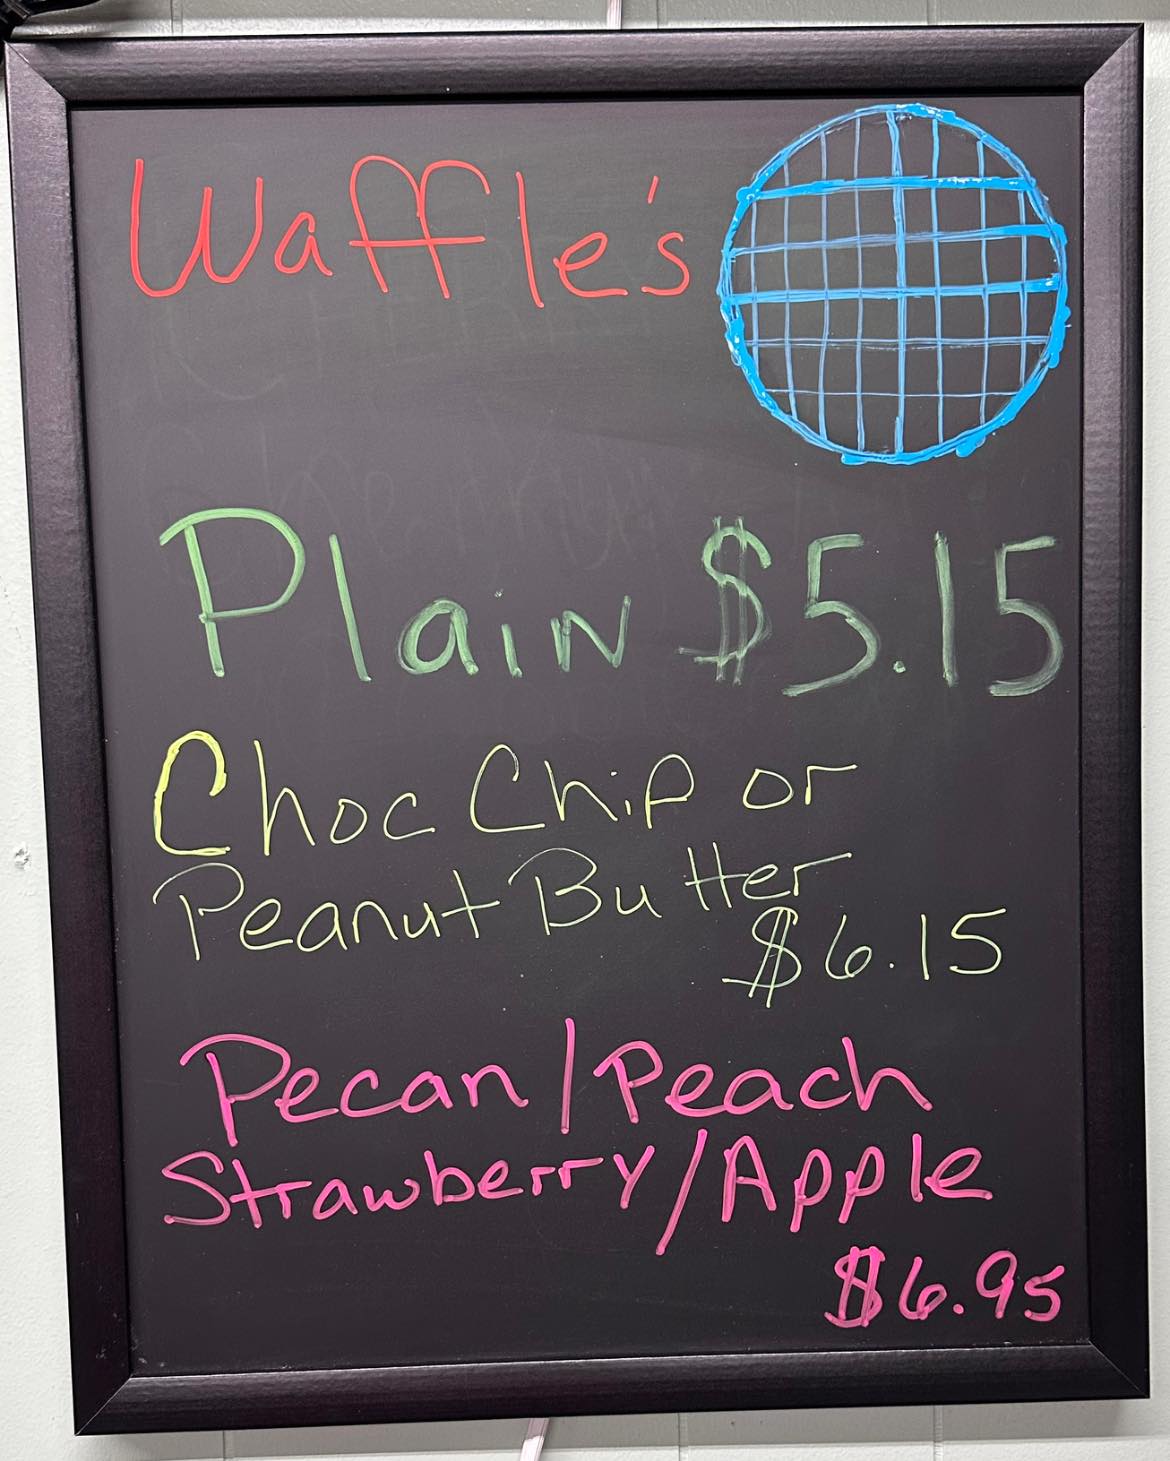 Waffle's
Plain $5.15
Choc Chip or
Peanut Butter
$6.15
Pecan/Peach
Strawberry/Apple
$6.95